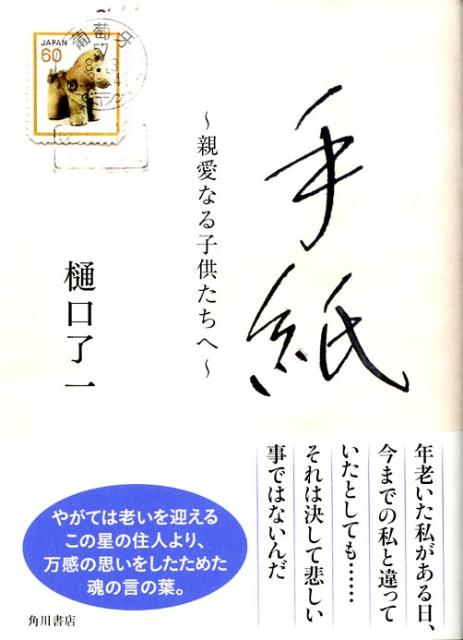 JAPAN
60
葡萄牙
57
手紙
~親愛なる子供たちへ~
樋口了一
年老いた私がある日、
今までの私と違って
いたとしても……
それは決して悲しい
事ではないんだ
やがては老いを迎える
この星の住人より、
万感の思いをしたためた
魂の言の葉。
角川書店